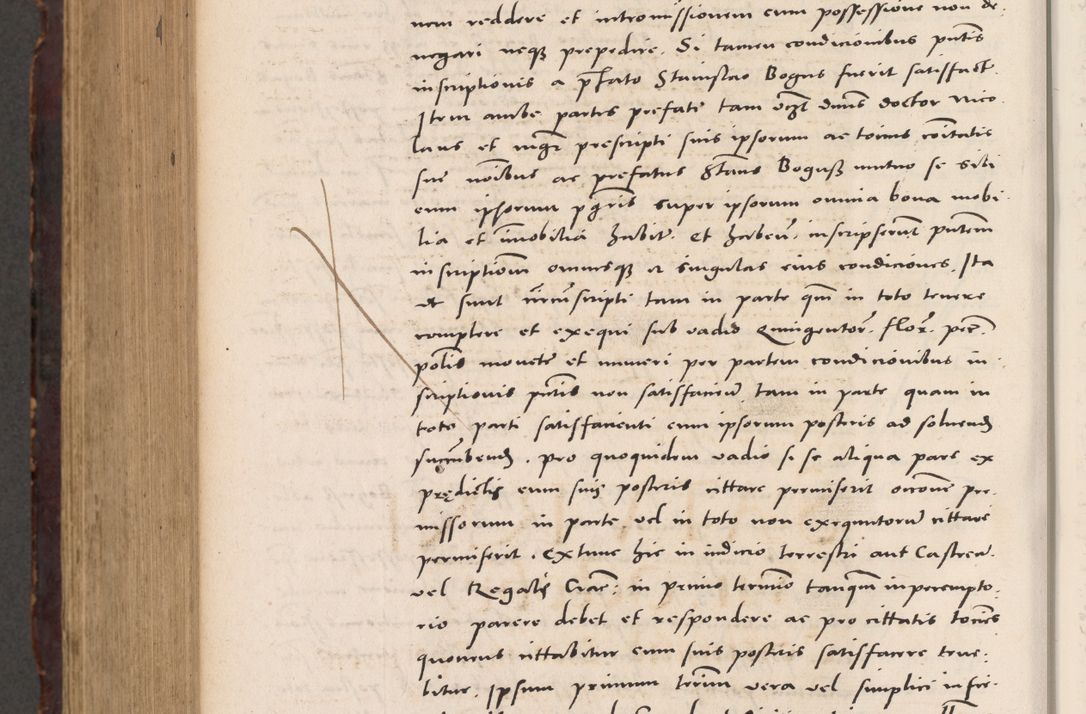 nem reddere et intromissionem cum possessione non de
negari neqꝫ prepedire. Si tamen condicionibus pntis
inscriptionis a pfato Stanislao Bogus fuerit satisfact.
Item ambe partes prefate tam vzt dnus doctor Nico
laus et mgr prescripti suis ipsorum ac totius coitatis
sue noibus ac prefatus Stanus Boguß mutuo se sibi
cum ipsorum pgris super ipsorum omnia bona mobi
lia et imobilia habit. et habeu. inscripserunt pntem
inscriptionem omnesqꝫ et singulas eius condiciones. Ita
ut sunt circumscripti tam in parte qm in toto tenere
complere et exequi sub vadio Quingentor. flor. pec.
polis monete et numeri per partem condicionibus in
scriptionis pntis non satisfacien tam in parte quam in
toto parti satisfacienti cum ipsorum posteris ad soluend
succubend. pro quoquidem vadio si se aliqua pars ex
prędictis cum suis posteris cittare permiserit occone pre
missorum in parte vel in toto non exequutorum cittare
permiserit. Extunc hic in iudicio terrestri aut Castren.
vel Regalis Crac. in primo termio tanquam in perempto
rio parere debet et respondere ac pro cittatis tociens
quociens cittabitur cum suis posteris satisfacere tene
bitur. Ipsum primum termi vera vel simplici infir